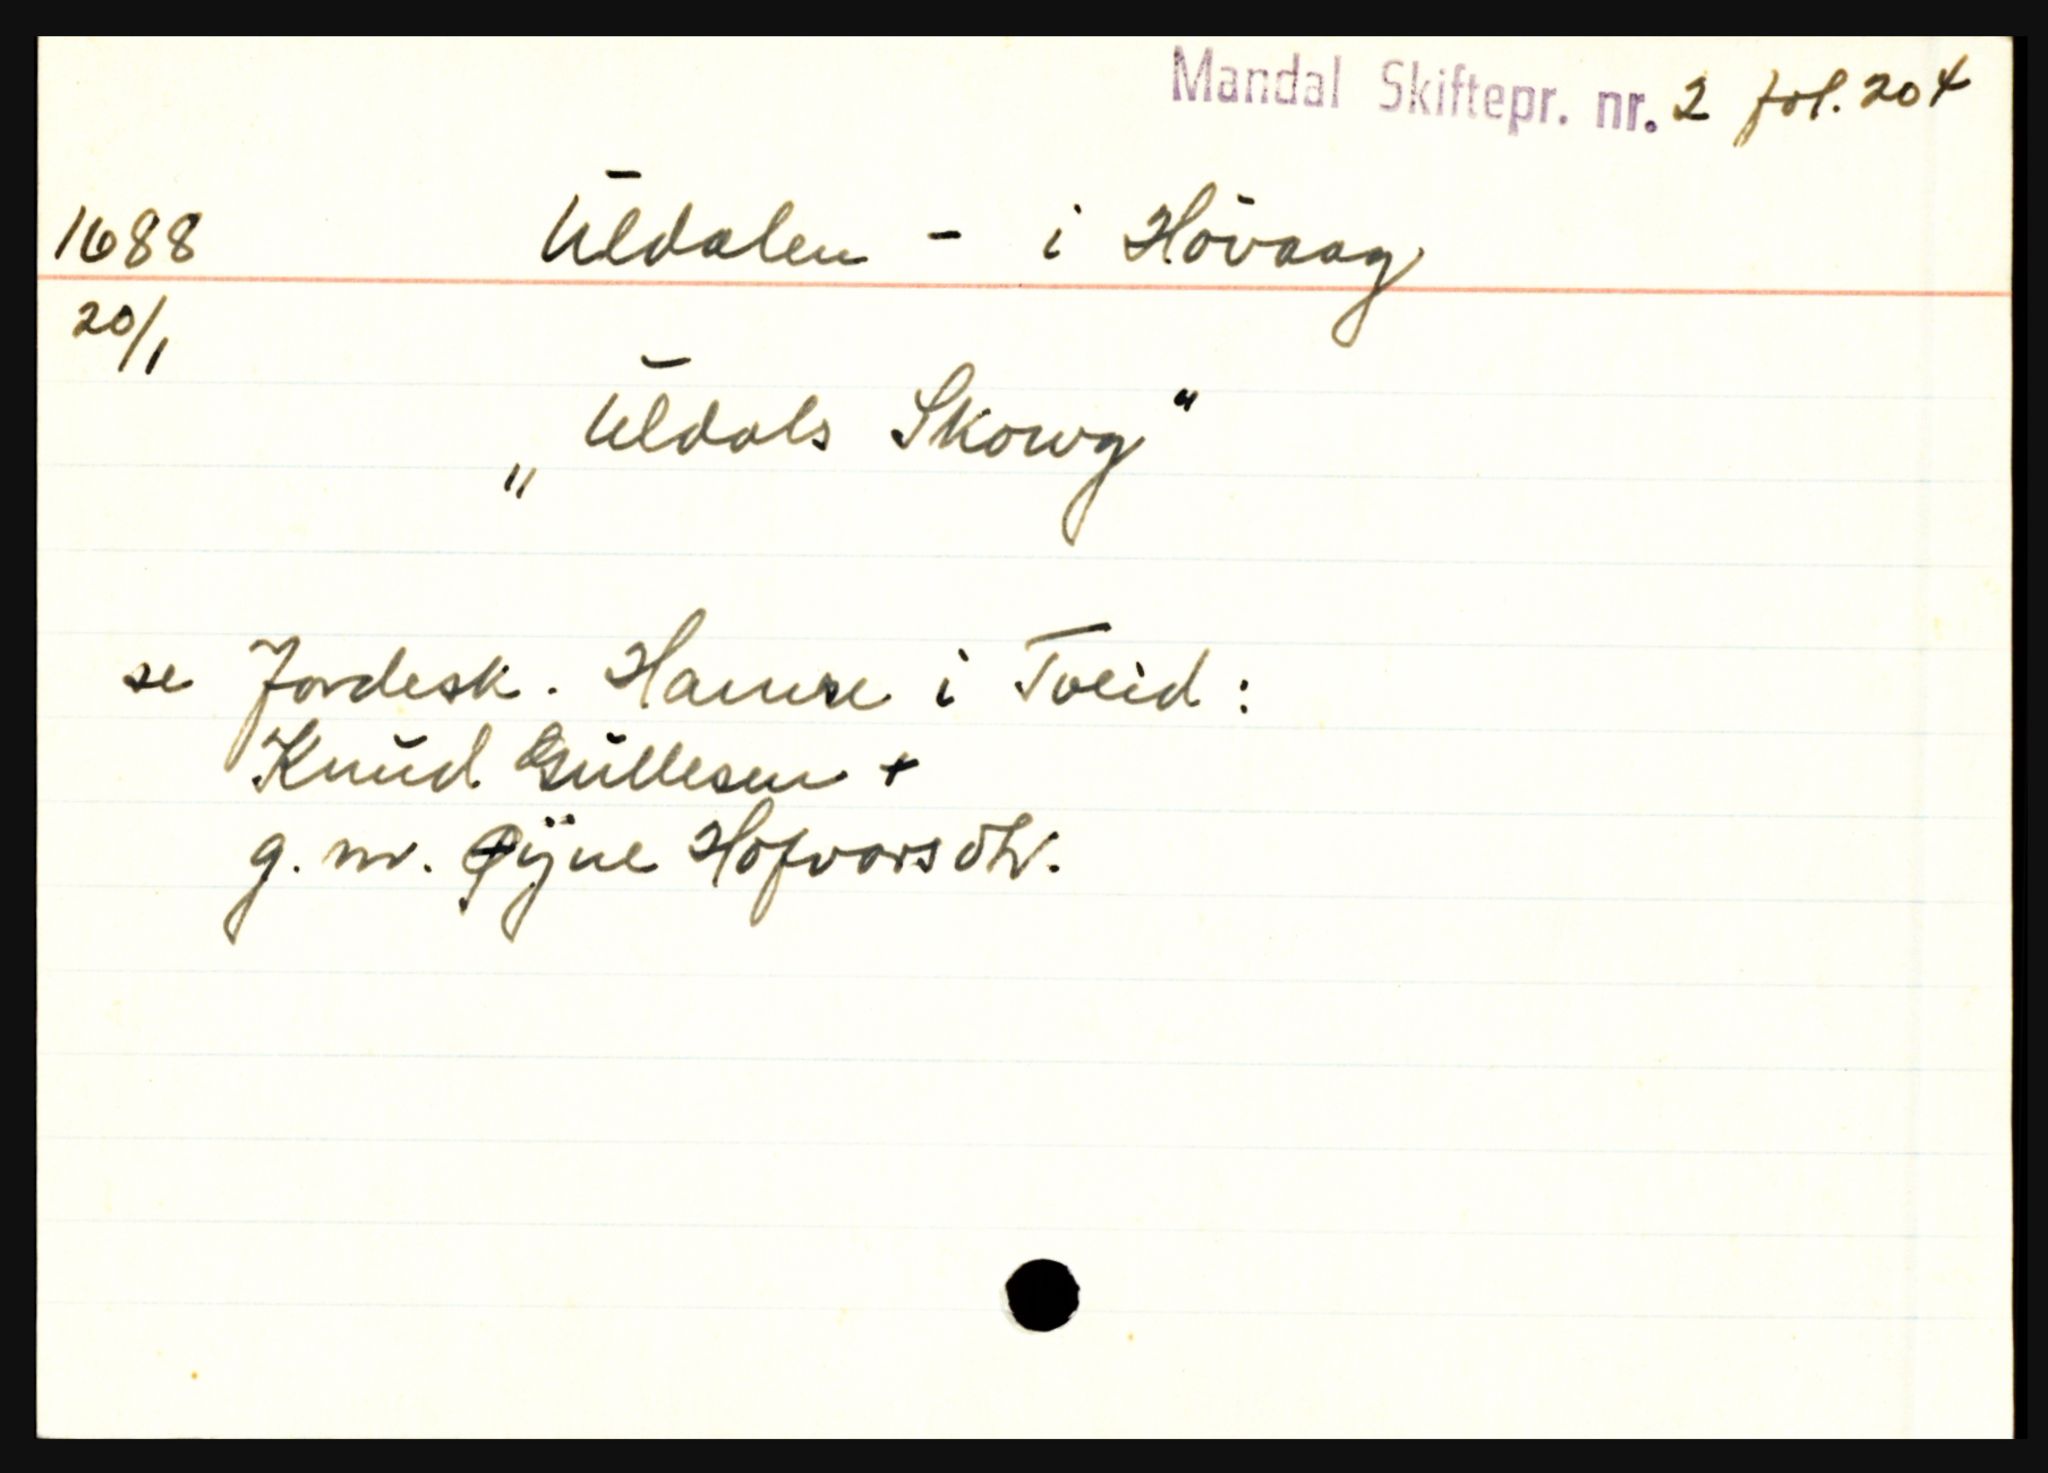 Mandal Skiftepr. nr. 2 fol. 204
1688 Uldalen - i Høvaag
20/1
„Uldals Skowg"
se Jordesk. Hamre i Tveid:
Knud Gullesen +
g. m. Øÿne Hofvorsdtr.